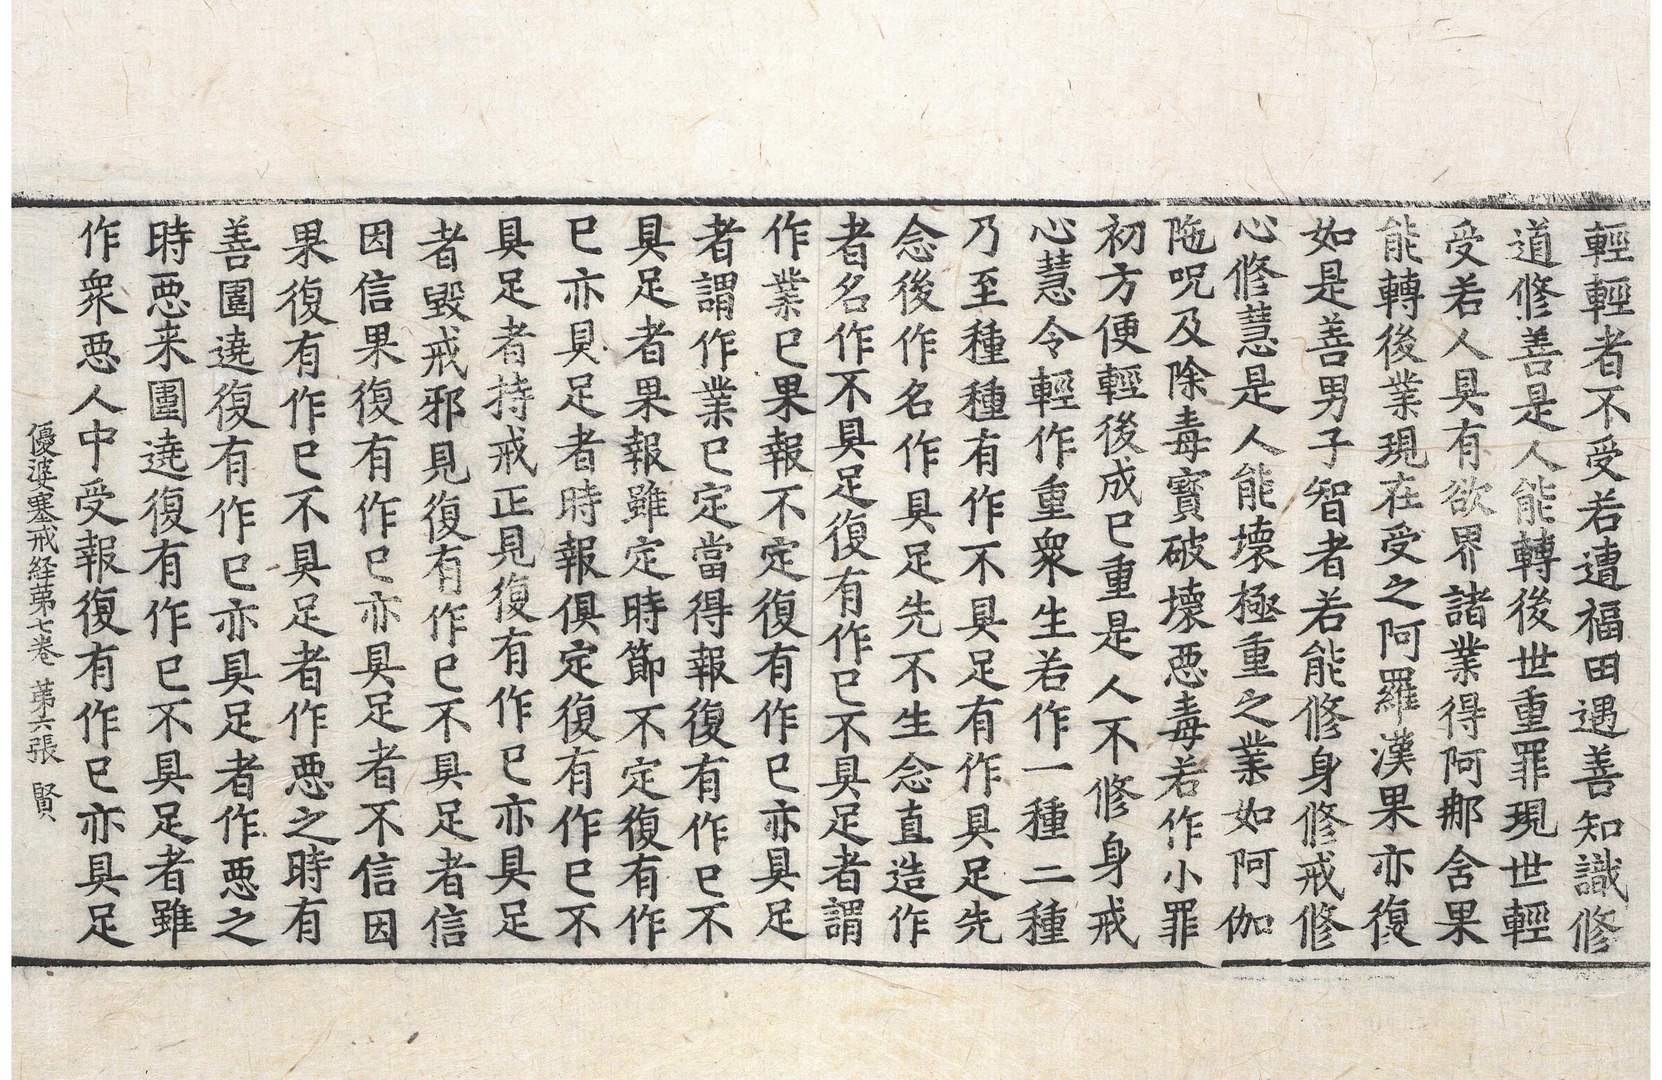 輕輕者不受若遭福田遇善知識修
道修善是人能轉後世重罪現世輕
受若人具有欲界諸業得阿那含果
能轉後業現在受之阿羅漢果亦復
如是善男子智者若能修身修戒修
心修慧是人能壞極重之業如阿伽
陁呪及除毒寶破壞惡毒若作小罪
初方便輕後成已重是人不修身戒
心慧令輕作重衆生若作一種二種
乃至種種有作不具足有作具足先
念後作名作具足先不生念直造作
者名作不具足復有作已不具足者謂
作業已果報不定復有作已亦具足
者謂作業已定當得報復有作已不
具足者果報雖定時節不定復有作
已亦具足者時報俱定復有作已不
具足者持戒正見復有作已亦具足
者毀戒邪見復有作已不具足者信
因信果復有作已亦具足者不信因
果復有作已不具足者作惡之時有
善圍遶復有作已亦具足者作惡之
時惡来圍遶復有作已不具足者雖
作衆惡人中受報復有作已亦具足
優婆塞戒経第七卷 第六張 賢